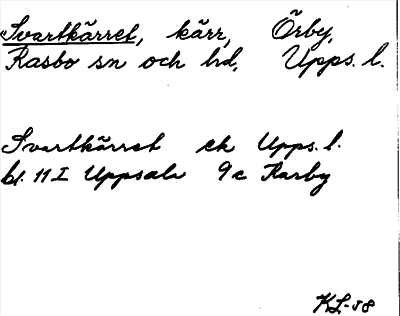 Svartkärret, kärr, Örby,
Rasbo sn och hd, Upps. l.
Svartkärret ek Upps. l.
bl. 11 I Uppsala 9c Karby
KL-58